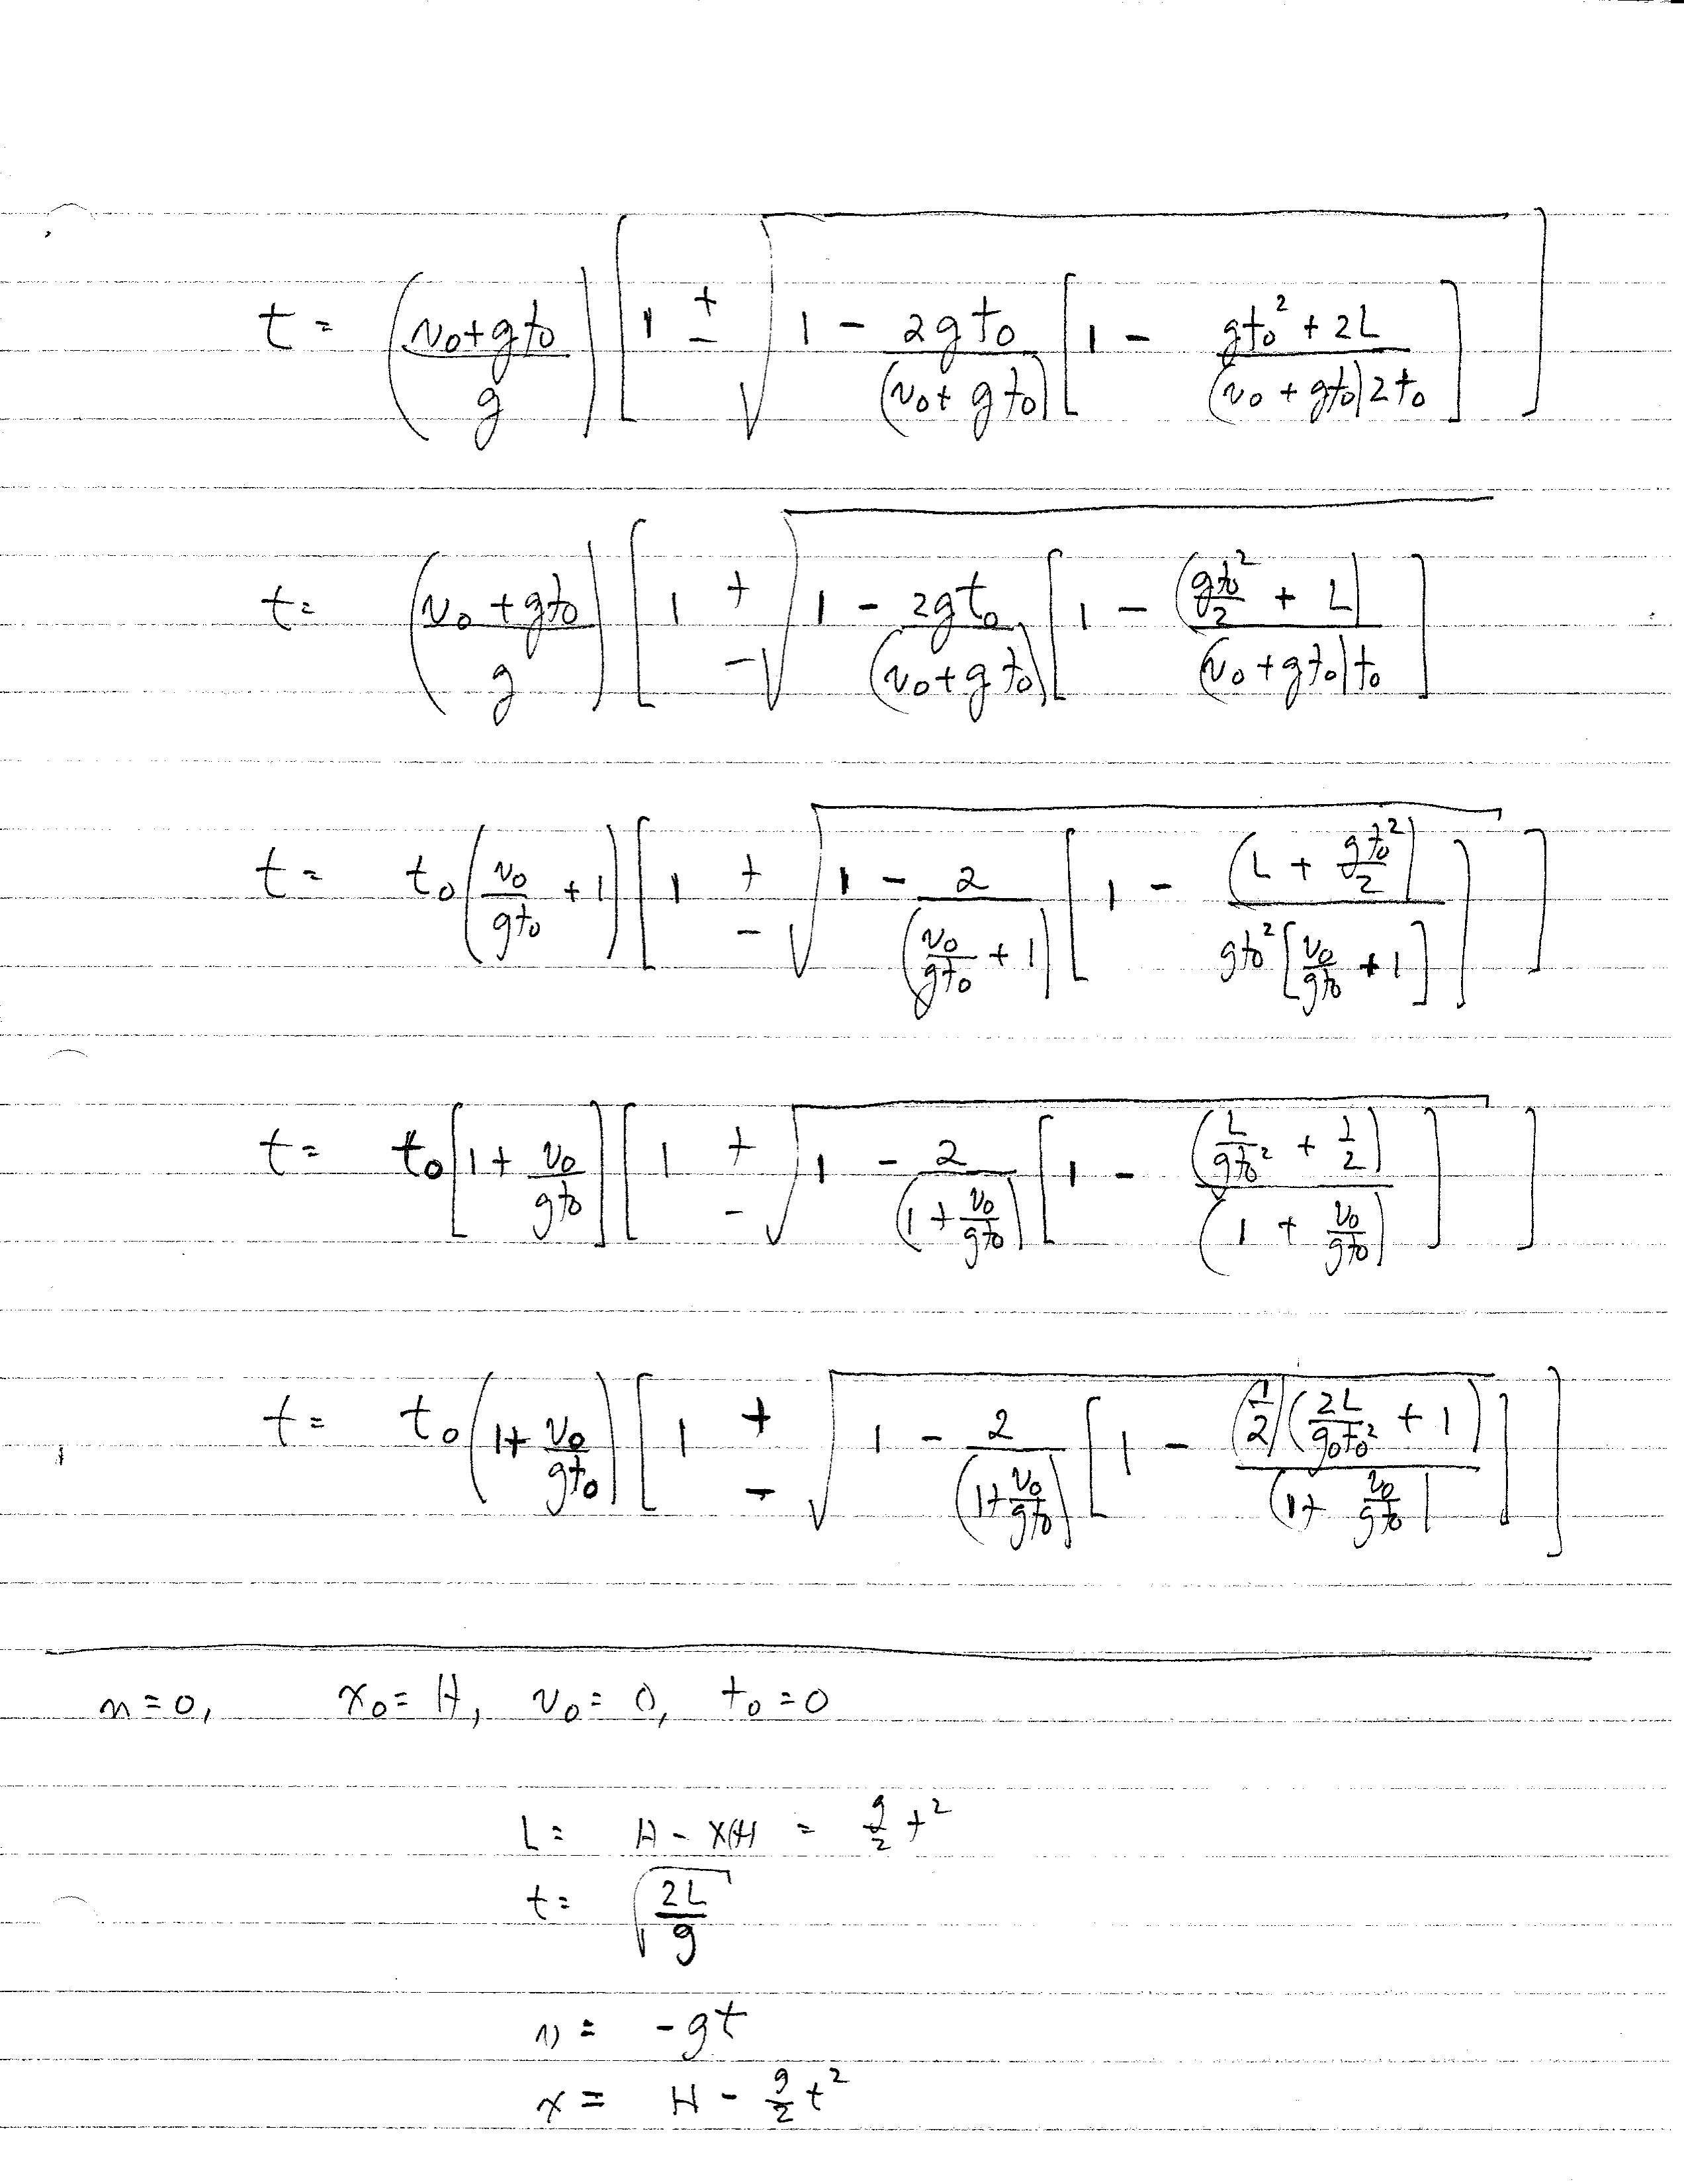 t = \left(\frac{v_0 + g t_0}{g}\right) \left[ 1 \pm \sqrt{1 - \frac{2 g t_0}{(v_0 + g t_0)} \left[ 1 - \frac{g t_0^2 + 2L}{(v_0 + g t_0) 2 t_0} \right]} \right]
t = \left(\frac{v_0 + g t_0}{g}\right) \left[ 1 \pm \sqrt{1 - \frac{2 g t_0}{(v_0 + g t_0)} \left[ 1 - \frac{\left(\frac{g t_0^2}{2} + L\right)}{(v_0 + g t_0) t_0} \right]}
t = t_0 \left(\frac{v_0}{g t_0} + 1\right) \left[ 1 \pm \sqrt{1 - \frac{2}{\left(\frac{v_0}{g t_0} + 1\right)} \left[ 1 - \frac{\left(L + \frac{g t_0^2}{2}\right)}{g t_0^2 \left[\frac{v_0}{g t_0} + 1\right]} \right]} \right]
t = t_0 \left[1 + \frac{v_0}{g t_0}\right] \left[ 1 \pm \sqrt{1 - \frac{2}{\left(1 + \frac{v_0}{g t_0}\right)} \left[ 1 - \frac{\left(\frac{L}{g t_0^2} + \frac{1}{2}\right)}{\left(1 + \frac{v_0}{g t_0}\right)} \right]} \right]
t = t_0 \left(1 + \frac{v_0}{g t_0}\right) \left[ 1 \pm \sqrt{1 - \frac{2}{\left(1 + \frac{v_0}{g t_0}\right)} \left[ 1 - \frac{\left(\frac{1}{2}\right)\left(\frac{2L}{g_0 t_0^2} + 1\right)}{\left(1 + \frac{v_0}{g t_0}\right)} \right]} \right]
n = 0, x_0 = H, v_0 = 0, t_0 = 0
L = H - x(t) = \frac{g}{2} t^2
t = \sqrt{\frac{2L}{g}}
v = -gt
x = H - \frac{g}{2} t^2